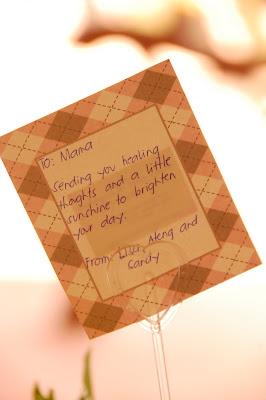 To: Mama
Sending you healing
thoghts and a little
sunshine to brighten
your day.
From: Neng and
Candy